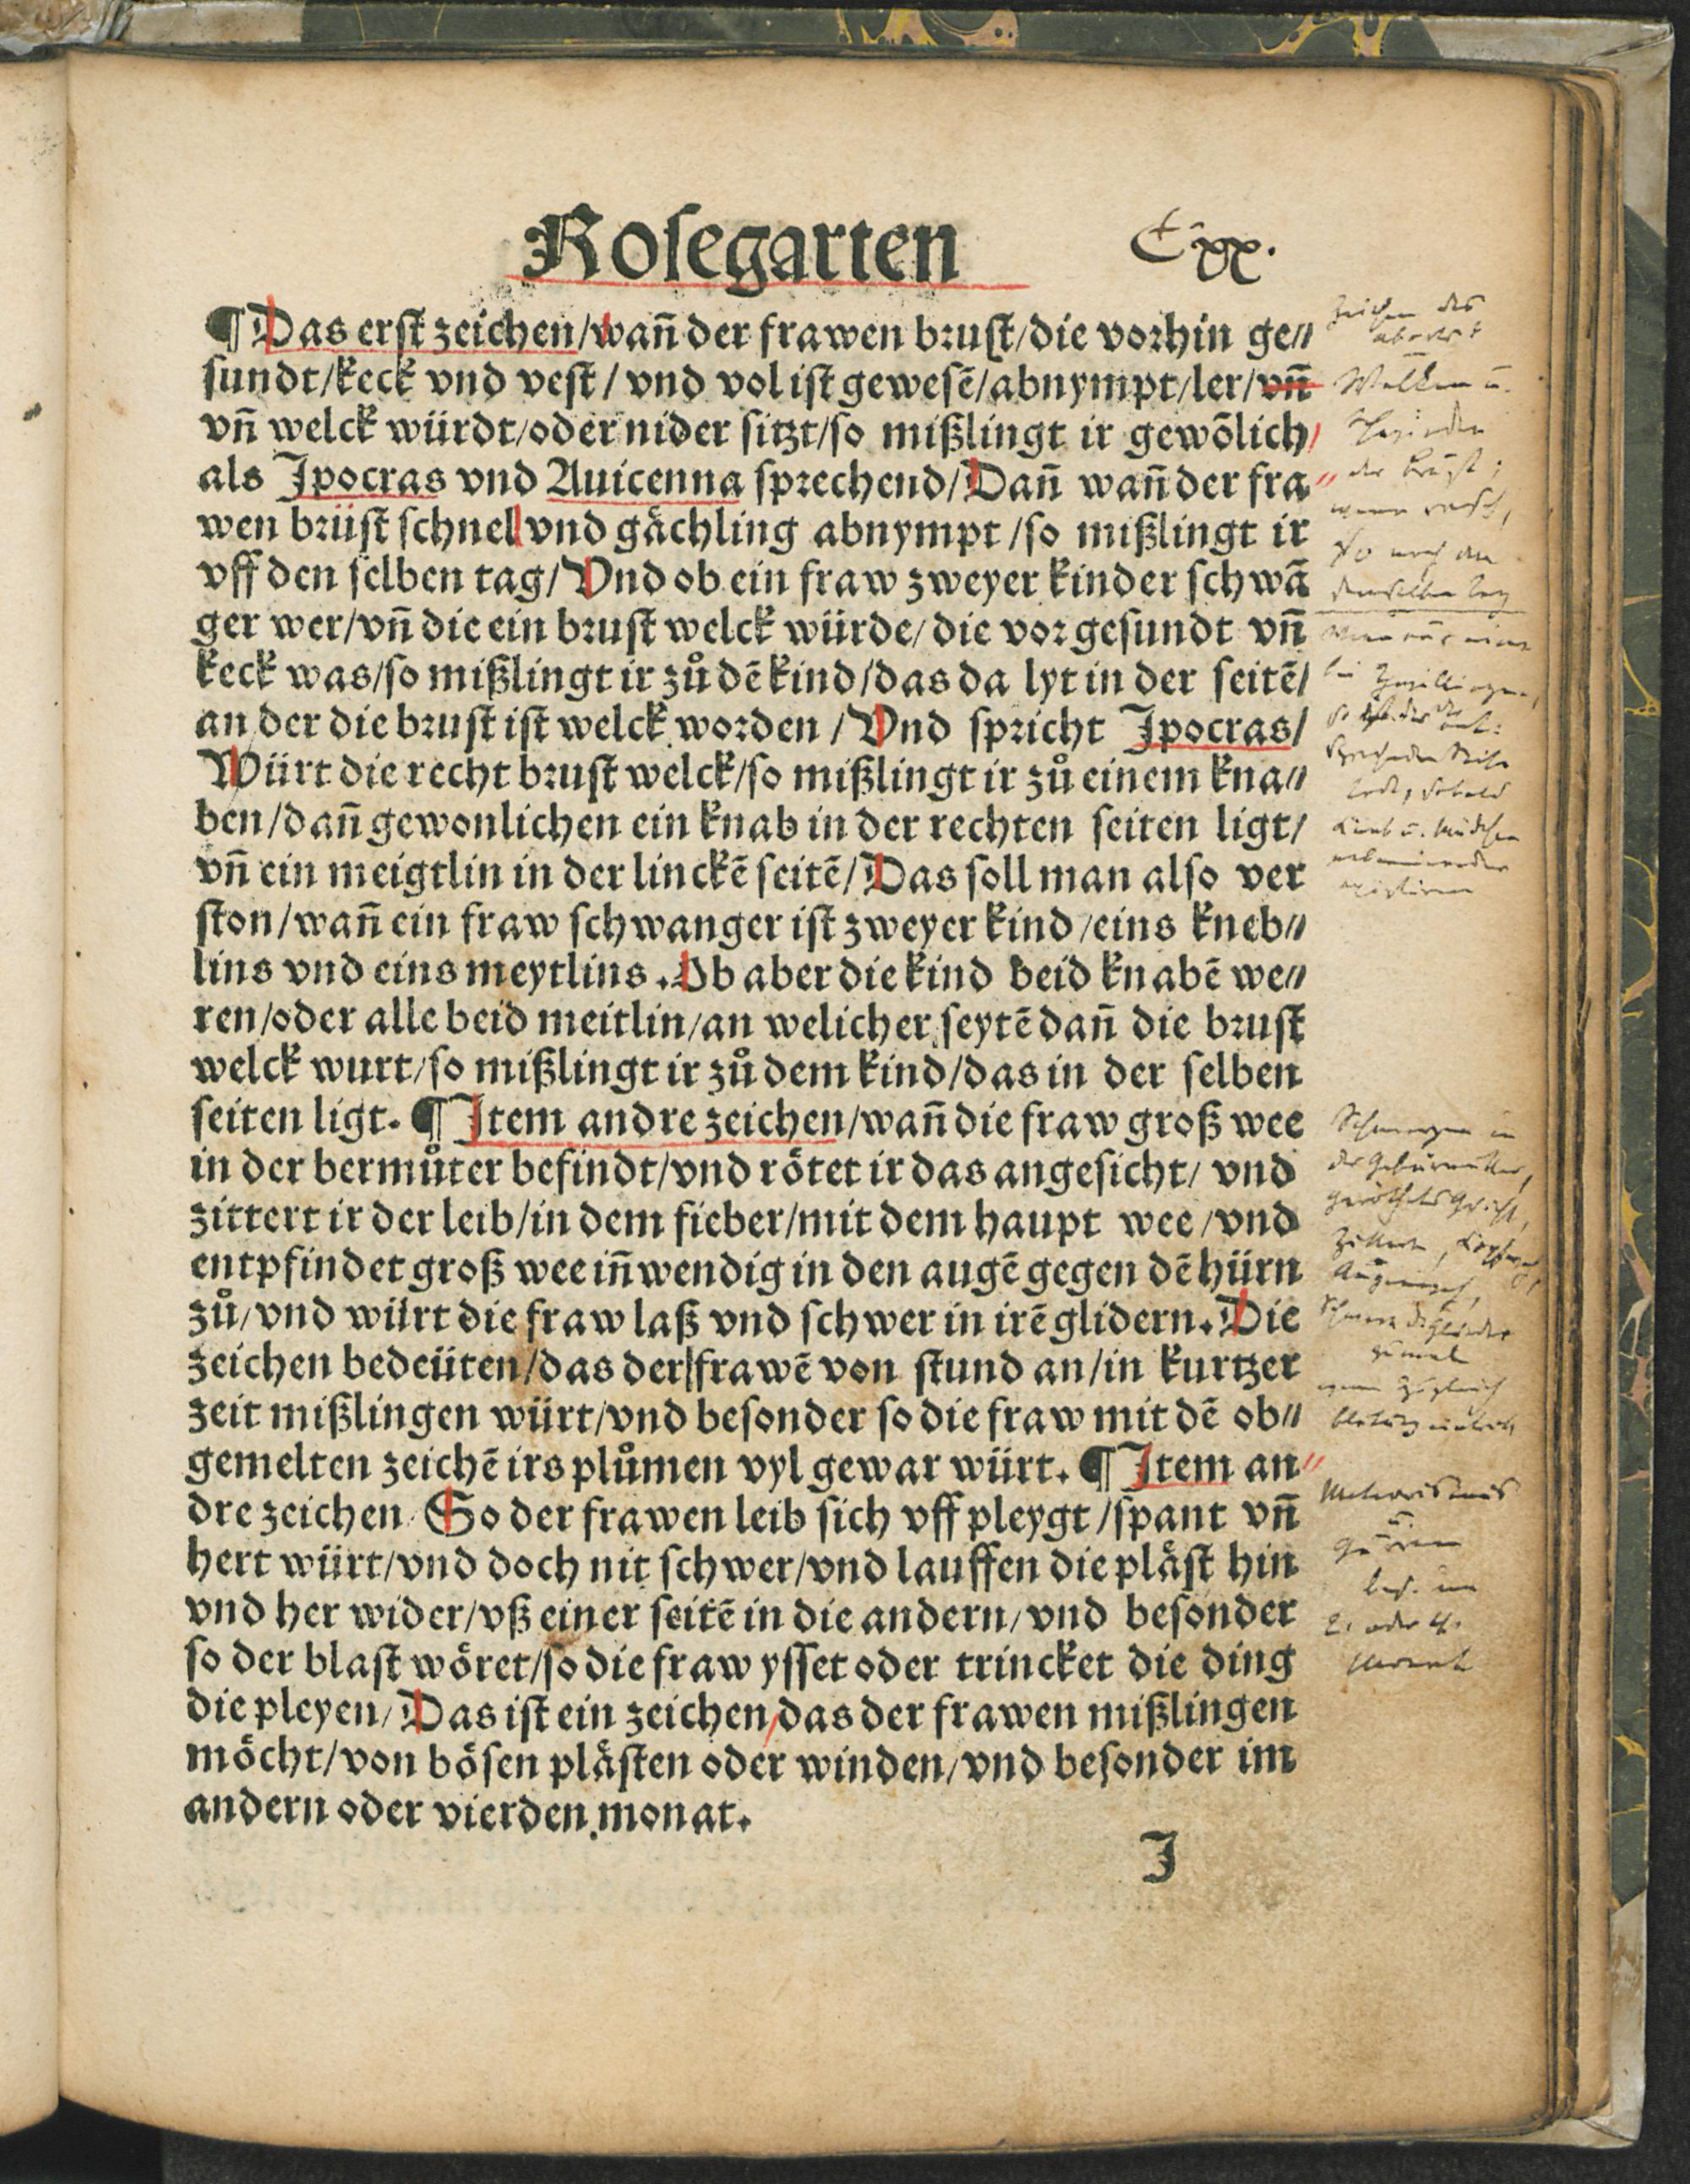 Rosegarten Cxx.
¶ Das erst zeichen/wañ der frawen brust/die vorhin ge⸗
sundt/keck vnd vest/vnd vol ist gewesẽ/abnympt/ler/vñ
vñ welck würdt/oder nider sitzt/so mißlingt ir gewõlich/
als Ipocras vnd Auicenna sprechend/Dañ wañ der fra
wen brüst schnell vnd gächling abnympt/so mißlingt ir
vff den selben tag/Vnd ob ein fraw zweyer kinder schwã
ger wer/vñ die ein brust welck würde/die vor gesundt vñ
keck was/so mißlingt ir zů dẽ kind/das da lyt in der seitẽ/
an der die brust ist welck worden/Vnd spricht Ipocras/
Würt die recht brust welck/so mißlingt ir zů einem kna⸗
ben/dañ gewonlichen ein knab in der rechten seiten ligt/
vñ ein meigtlin in der linckẽ seitẽ/Das soll man also ver
ston/wañ ein fraw schwanger ist zweyer kind/eins kneb⸗
lins vnd eins meytlins. Ob aber die kind beid knabẽ we⸗
ren/oder alle beid meitlin/an welicher seytẽ dañ die brust
welck wurt/so mißlingt ir zů dem kind/das in der selben
seiten ligt. ¶ Item andre zeichen/wañ die fraw groß wee
in der bermůter befindt/vnd rötet ir das angesicht/vnd
zittert ir der leib/in dem fieber/mit dem haupt wee/vnd
entpfindet groß wee iñwendig in den augẽ gegen dẽ hürn
zů/vnd würt die fraw laß vnd schwer in irẽ glidern. Die
zeichen bedeüten/das der frawẽ von stund an/in kurtzer
zeit mißlingen würt/vnd besonder so die fraw mit dẽ ob⸗
gemelten zeichẽ irs plůmen vyl gewar würt. ¶ Item an
dre zeichen So der frawen leib sich vff pleygt/spant vñ
hert würt/vnd doch nit schwer/vnd lauffen die pläst hin
vnd her wider/vß einer seitẽ in die andern/vnd besonder
so der blast wöret/so die fraw ysset oder trincket die ding
die pleyen/Das ist ein zeichen/das der frawen mißlingen
möcht/von bösen plästen oder winden/vnd besonder im
andern oder vierden monat.
I
Zeichen des
Aborts:
Welken u.
der Brüst;
wenn rasch,
so noch an
denselben Tag
Schmerzen in
der Gebärmutter,
Zittern,
zumal
wenn zugleich
Meteorismus
u.
bes. im
2. oder 4.
Monat